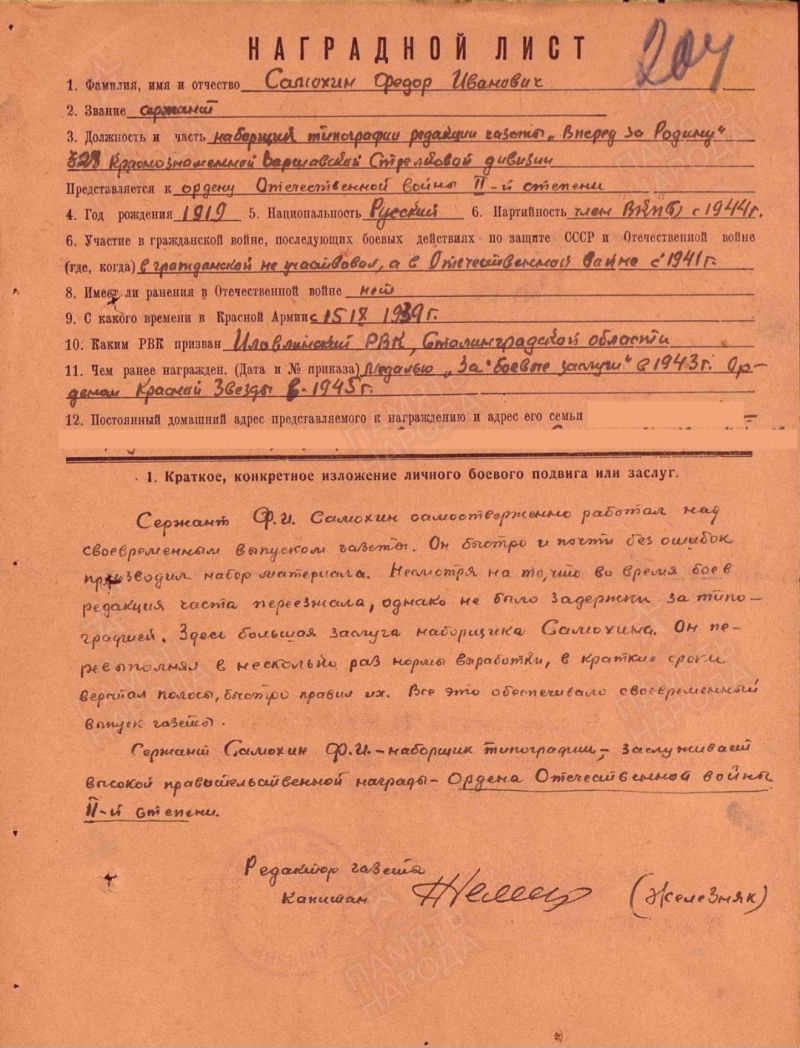 204
НАГРАДНОЙ ЛИСТ
1. Фамилия, имя и отчество Самохин Федор Иванович
2. Звание сержант
3. Должность и часть наборщик типографии редакции газеты „Вперед за Родину"
328 Краснознаменной Варшавской Стрелковой дивизии
Представляется к ордену Отечественной войны II-й степени
4. Год рождения 1919 5. Национальность Русский 6. Партийность член ВКП(б) с 1944г.
6. Участие в гражданской войне, последующих боевых действиях по защите СССР и Отечественной войне
(где, когда) в гражданской не участвовал, а в Отечественной войне с 1941 г.
8. Имеет ли ранения в Отечественной войне нет
9. С какого времени в Красной Армии с 15 IX 1939г.
10. Каким РВК призван Иловлинский РВК, Сталинградской области
11. Чем ранее награжден. (Дата и № приказа) Медалью „За боевые заслуги" в 1943г. Ор-
деном Красной Звезды в 1945г.
12. Постоянный домашний адрес представляемого к награждению и адрес его семьи
1. Краткое, конкретное изложение личного боевого подвига или заслуг.
Сержант Ф.И. Самохин самоотверженно работал над
своевременным выпуском газеты. Он быстро и почти без ошибок
производил набор материала. Несмотря на то, что во время боев
редакция часта переезжала, однако не было задержки за типо-
графией. Здесь большая заслуга наборщика Самохина. Он пе-
ревыполнял в несколько раз нормы выработки, в краткие сроки
верстал полосы, быстро правил их. Все это обеспечивало своевременный
выпуск газеты.
Сержант Самохин Ф.И. – наборщик типографии, – заслуживает
высокой правительственной награды – Ордена Отечественной войны
II-й степени.
Редактор газеты
Капитан (Железняк)
ПАМЯТЬ
НАРОДА